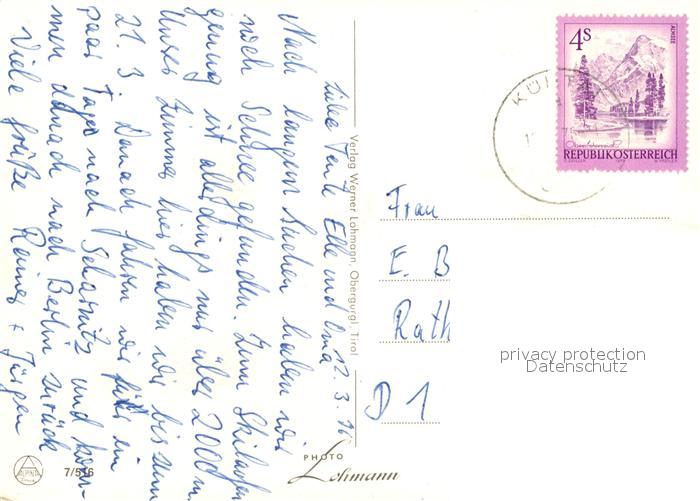 Liebe Tante Elle und Oma 12. 3. 76
Nach langem Suchen haben wir
noch Schnee gefunden. Zum Skilaufen
genug ist allerdings nur über 2000 m.
Unser Zimmer hier haben wir bis zum
21. 3 Danach fahren wir für ein
paar Tage nach Scharnitz und kom-
men danach nach Berlin zurück
Viele Grüße Rainer + Jürgen
Verlag Werner Lohmann, Obergurgl, Tirol
7/516
PHOTO
Lohmann
4S
ALMSEE
Oberösterreich
REPUBLIK ÖSTERREICH
Frau
E. B
Rath
D 1
privacy protection
Datenschutz